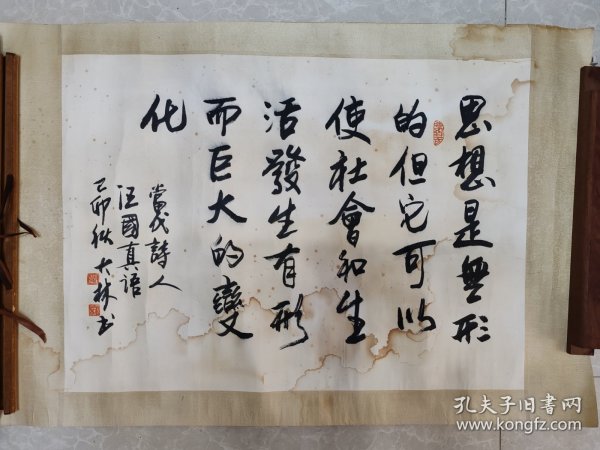 思想是無形
的但它可以
使社會和生
活發生有形
而巨大的變
化
當代詩人
汪國真語
己卯秋大林书
孔夫子旧书网
www.kongfz.com